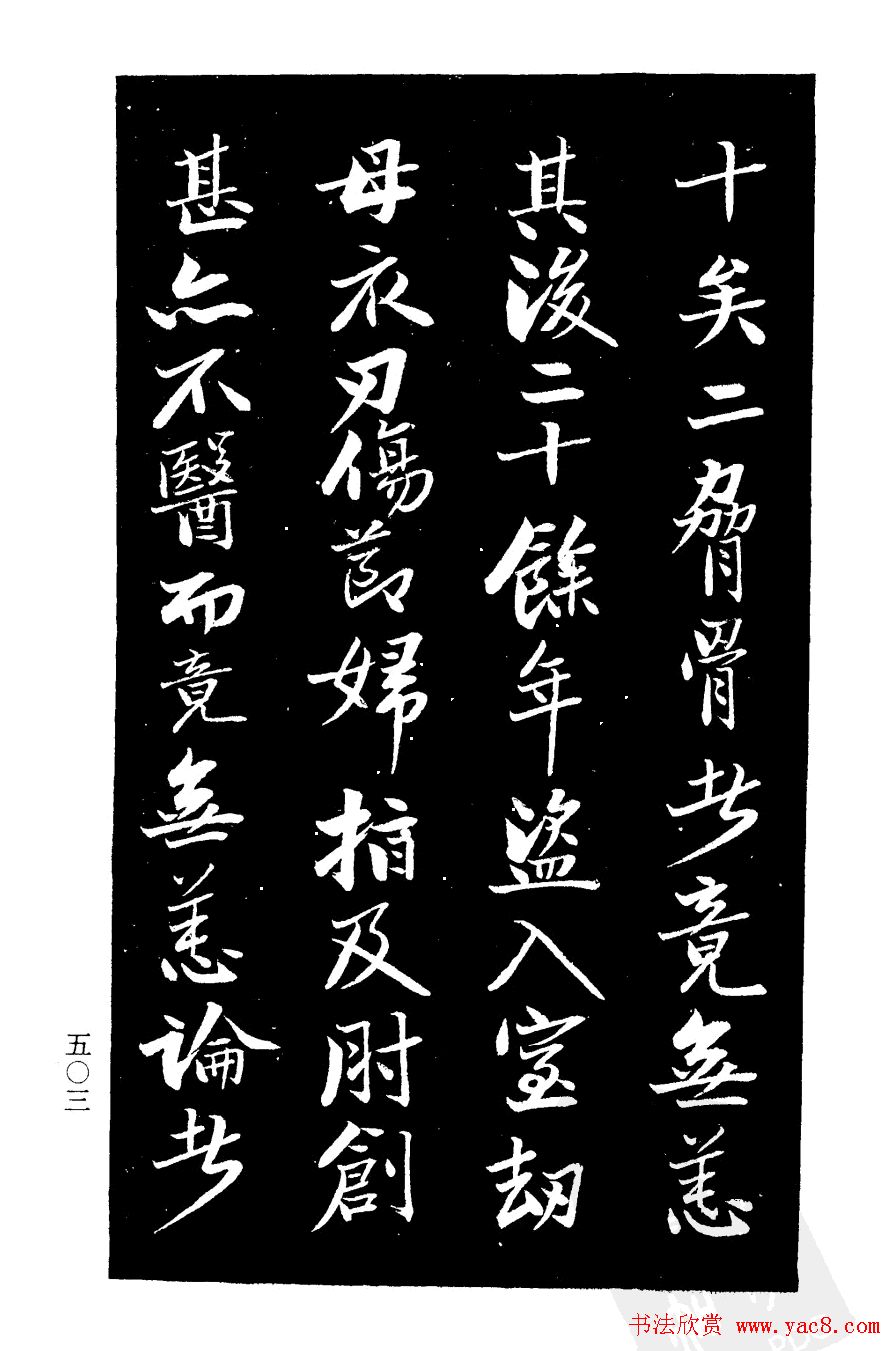 十矣二脅骨者竟無恙
其後二十餘年盜入室刼
母衣刃傷節婦指及肘創
甚亦不醫而竟無恙論者
五〇三
书法欣赏 www.yac8.com